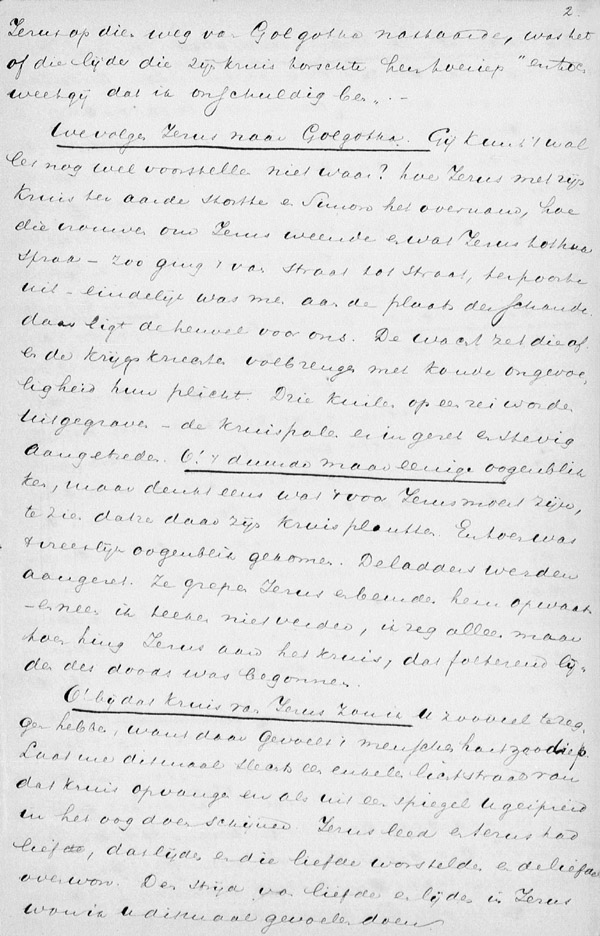 2.
Jezus op dien weg van Golgotha nastaarde, was het
of die lijder die zijn kruis torschte hem toeriep "en toch
weet gij dat ik onschuldig ben". -
We volgen Jezus naar Golgotha. Gij kunt 't u al
les nog wel voorstellen niet waar? hoe Jezus met zijn
kruis ter aarde stortte en Simon het overnam, hoe
die vrouwen om Jezus weenden en wat Jezus tot haar
sprak - zoo ging 't van straat tot straat, ter poorte
uit - eindelijk was men aan de plaats der schande.
daar ligt de heuvel voor ons. De wacht zet die af
en de krijgsknechten volbrengen met koude ongevoe,
ligheid hun plicht. Drie kuilen op een rei worden
uitgegraven - de kruispalen er in gezet en stevig
aangetreden. O! 't duurde maar eenige oogenblik
ken, maar denkt eens wat 't voor Jezus moest zijn,
te zien dat ze daar zijn kruis plantten. En toen was
't vreeslijk oogenblik gekomen. De ladders werden
aangezet. Ze grepen Jezus en beurden hem opwaarts
- en neen ik teeken niet verder, ik zeg alleen maar
toen hing Jezus aan het kruis, dat folterend lij,
den des doods was begonnen.
O! bij dat kruis van Jezus zou ik U zooveel te zeg,
gen hebben, want daar gevoelt 't menschenhart zoo diep.
Laat me ditmaal slechts een enkele lichtstraal van
dat kruis opvangen en als uit een spiegel U gespreid
in het oog doen schijnen. Jezus leed en Jezus had
lief, dat lijden en die liefde worstelden en de liefde
overwon. Den strijd van liefde en lijden in Jezus
wou ik U ditmaal gevoelen doen.